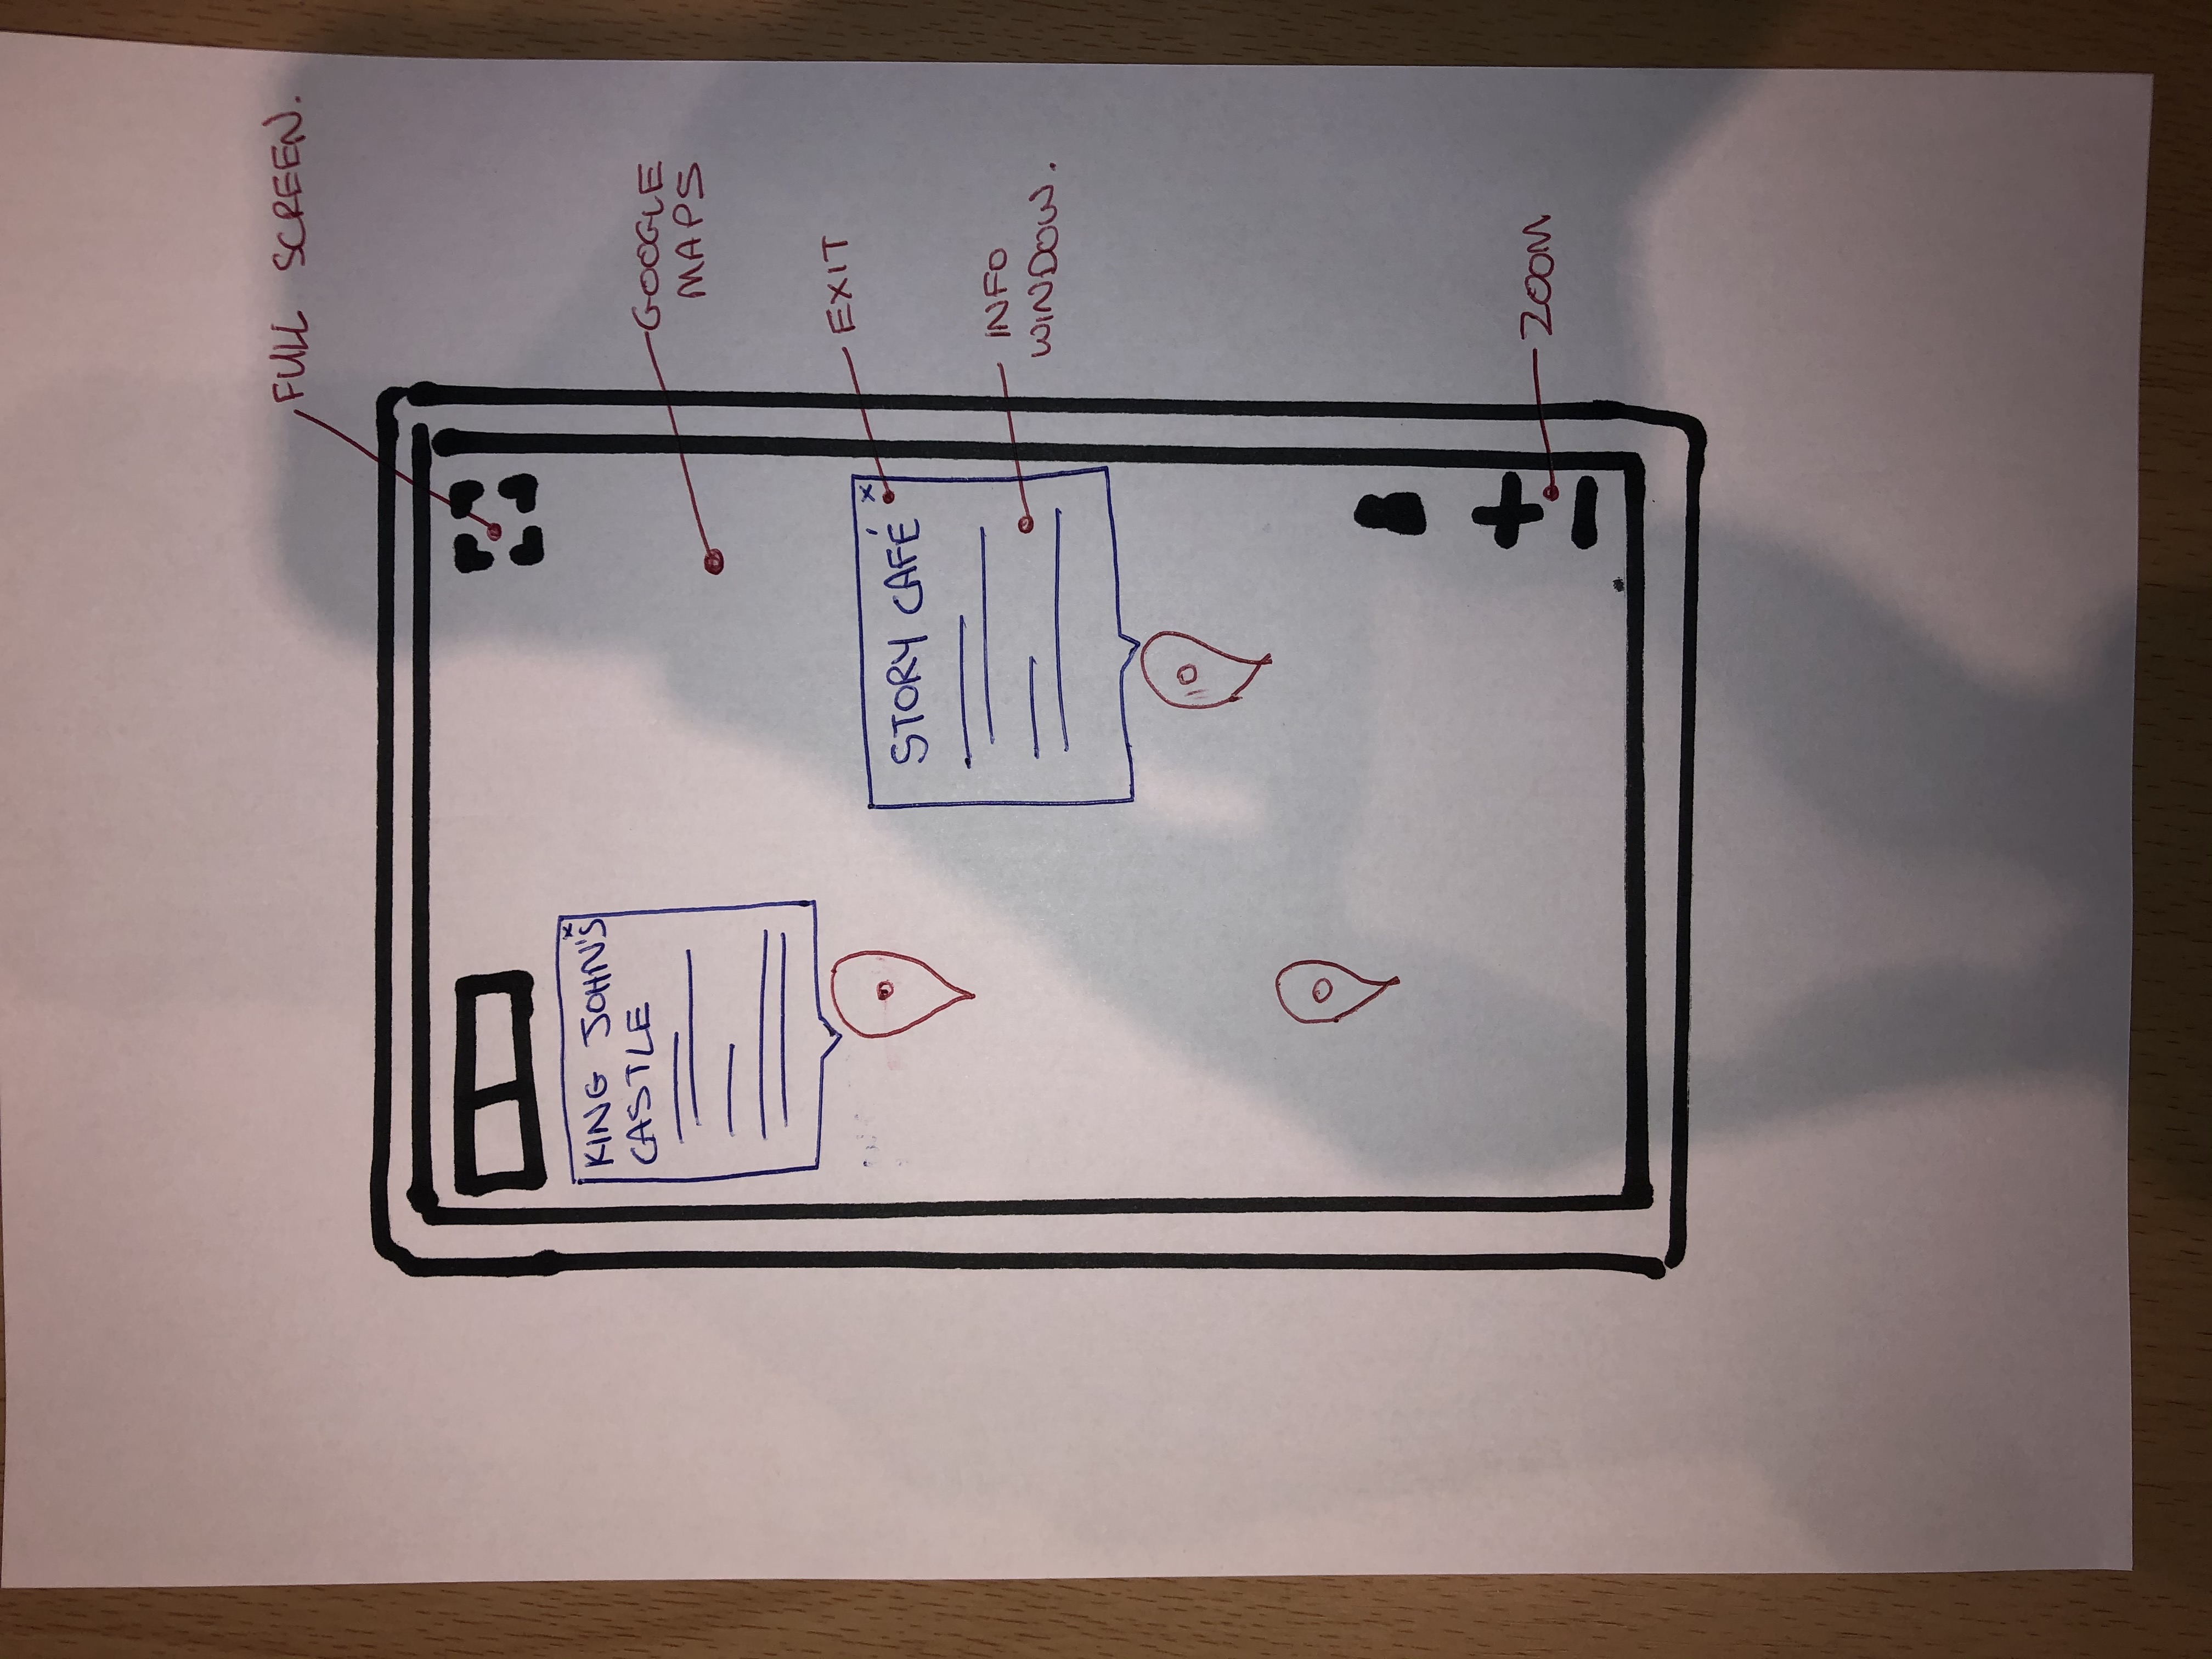 FULL SCREEN.
KING JOHN'S
CASTLE
GOOGLE
MAPS
EXIT
STORY CAFÉ
INFO
WINDOW.
ZOOM